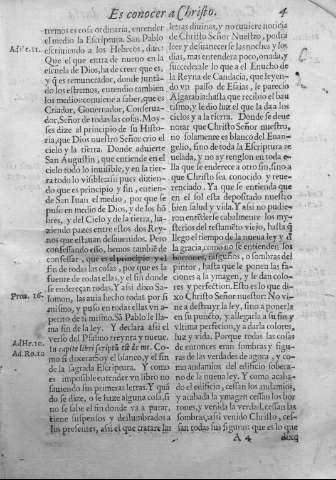 Es conocer a Christo.
4
tremos es cosi ordinaria, entender
el medio la Escriptura. San Pablo
Ad He. 11.
escriuiendo a los Hebreos, dize:
Que el que entra de nueuo en la
escuela de Dios, ha de creer que es,
y q̃ es remunerador, donde juntã-
do los estremos, entendio tambien
los medios: conuiene a saber, que es
Criador, Gouernador, Conserua-
dor, Señor de todas las cosas. Moy-
ses dize al principio de su Histo-
ria, que Dios nuestro Señor crio el
cielo y la tierra. Donde aduierte
San Augustin, que entiende en el
cielo todo lo inuisible, y en la tier-
ra todo lo visible: assi pues dizien-
do que es principio y fin, entien-
de San Iuan el medio, por que se
puso en medio de Dios, y de los hõ
bres, y del Cielo y de la tierra, ha-
ziendo pazes entre estos dos Rey-
nos que estauan desauenidos. Pero
confessando esto, hemos tambiẽ de
confessar, que es el principio y el
fin de todas las cosas, por que es la
fuente de todas ellas, y el fin donde
se enderezan todas. Y assi dixo Sa-
Prou. 16.
lomon, las auia hecho todas por si
mismo, y puso en todas ellas vn a-
petito de si mismo. Sã Pablo le lla-
ma fin de la ley. Y declara assi el
verso del Psalmo treynta y nueue.
Ad He. 10.
In capite libri scriptũ est de me. Co-
Ad Ro. 10
mo si dixera: Soy el blanco, y el fin
de la sagrada Escriptura. Y como
es impossible entender vn libro no
sabiendo sus primeras letras. Y quã
do se dize, o se haze alguna cosa, si
no se sabe el fin donde va a parar,
tiene suspensos y deslumbrados a
los presentes, assi el que tratare las
letras diuinas, y no tuuiere noticia
de Christo Señor Nuestro, podrà
leer y desuanecerse las noches y los
dias, mas entendera poco, o nada, y
succederale lo que a el Eunucho de
la Reyna de Candacia, que leyen-
do vn passo de Esaias, le parecio
Algarabia: hasta que recibio el bau
tismo, y le dio luz el que la da a los
ciclos y a la tierra. Donde se deue
notar que Christo Señor nuestro,
no solamente es blanco del Euan-
gelio, sino de toda la Escriptura re
uelada, y no ay renglon en toda e-
lla que se enderece a otro fin, sino a
que Christo sea conocido y reue-
renciado. Ya que se entienda que
en el sol esta depositado nuestro
bien salud y vida. Y assi no pudie-
ron entẽderse cabalmente los mys-
terios del testamẽto viejo, hasta q̃
llego el tiempo de la nueua ley y d̃
la gracia, como no se entienden los
borrones, rasguños, o sombras del
pintor, hasta que le ponen las fi-
ciones a la ymagen, y le dan colo-
res y perfection. Esto es lo que di-
xo Christo Señor nuestro: No vi-
ne a destruyr la ley, sino a ponerla
en su punto, y allegarla a su fin y
vltima perfection, y a darla colores,
luz y vida. Porque todas las cosas
de entonces eran sombras y figu-
ras de las verdades de agora, y co-
mo andamios del edificio sobera-
no de la nueua ley. Y como acaba-
do el edificio, cessan los andamios,
y acabada la ymagen cessan los bor
rones, y venida la verdad, cessan las
sombras, assi venido Christo, ces-
san todas sus figuras: que es lo que
A 4